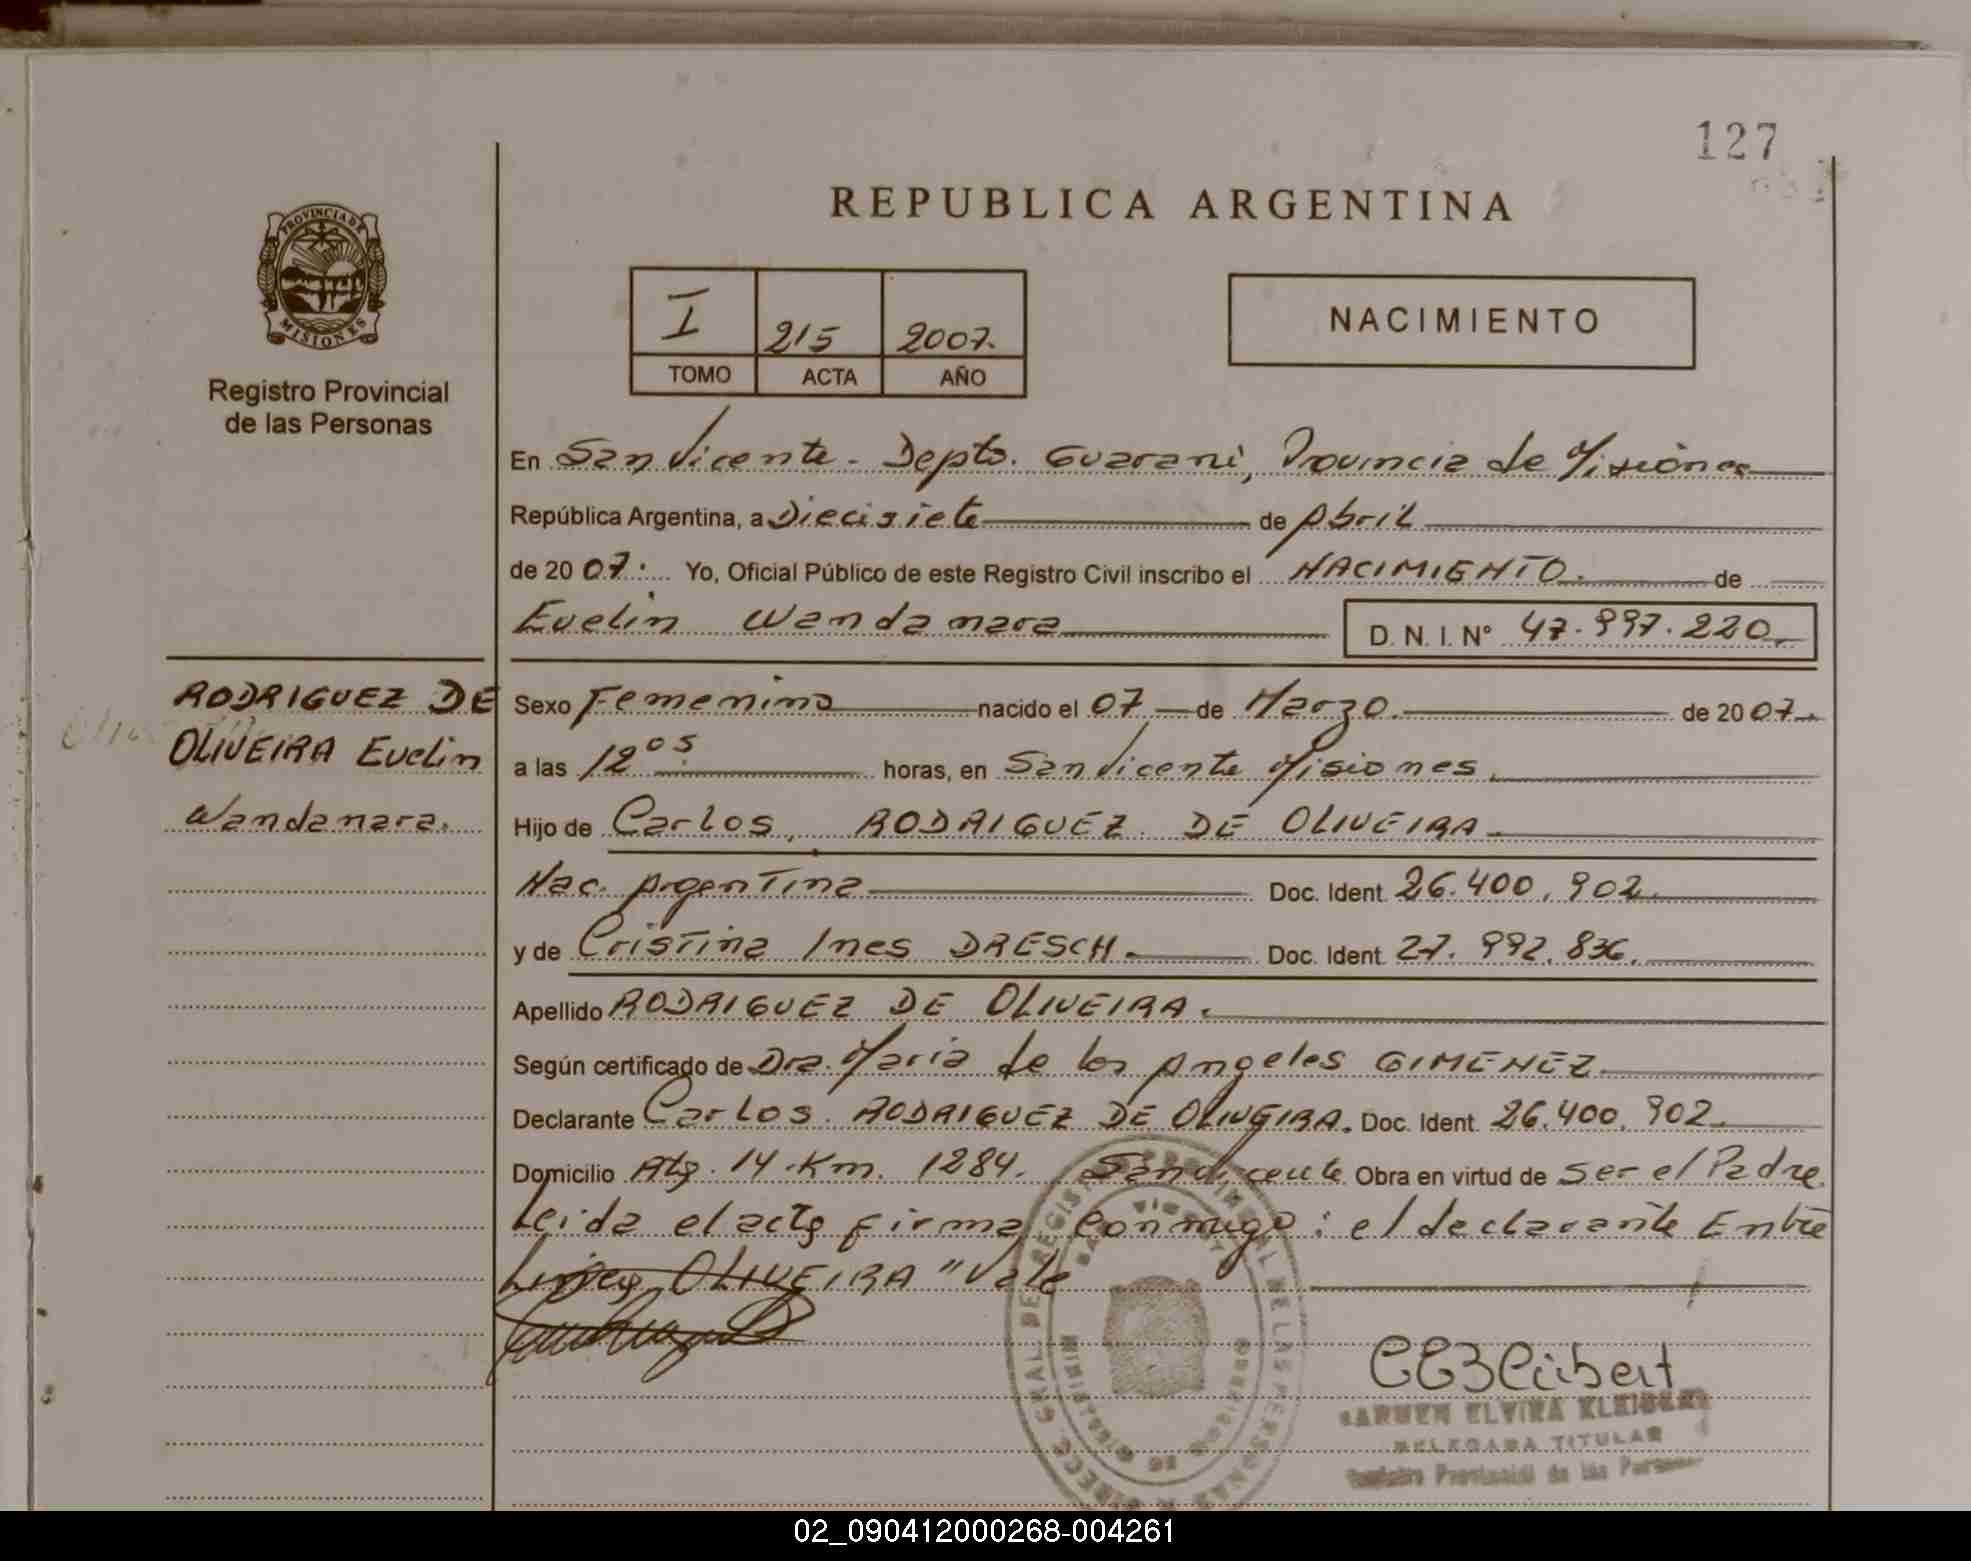 127
REPUBLICA ARGENTINA
PROVINCIA DE
MISIONES
Registro Provincial
de las Personas
I 215 2007.
TOMO ACTA AÑO
NACIMIENTO
En San Vicente - Depto. Guarani, Provincia de Misiones
República Argentina, a Diecisiete de Abril
de 2007. Yo, Oficial Público de este Registro Civil inscribo el NACIMIENTO. de
Evelin Wandanara D. N. I. Nº 47.997.220.
RODRIGUEZ DE
OLIVEIRA Evelin
Wandanara.
Sexo Femenino nacido el 07 de Marzo. de 2007.
a las 12 05 horas, en San Vicente Misiones.
Hijo de Carlos, RODRIGUEZ DE OLIVEIRA
Nac. Argentina Doc. Ident. 26.400.902.
y de Cristina Ines DRESCH. Doc. Ident. 27.992.836.
Apellido RODRIGUEZ DE OLIVEIRA.
Según certificado de Dra. Maria de los Angeles GIMENEZ
Declarante Carlos. RODRIGUEZ DE OLIVEIRA. Doc. Ident. 26.400.902.
Domicilio Rta. 14 Km. 1284. San Vicente Obra en virtud de ser el Padre
Leida el acta firma conmigo: el declarante Entre
Lineas OLIVEIRA "Vale
CARMEN ELVIRA KLEIBERT
DELEGADA TITULAR
Registro Provincial de las Personas
02_090412000268-004261